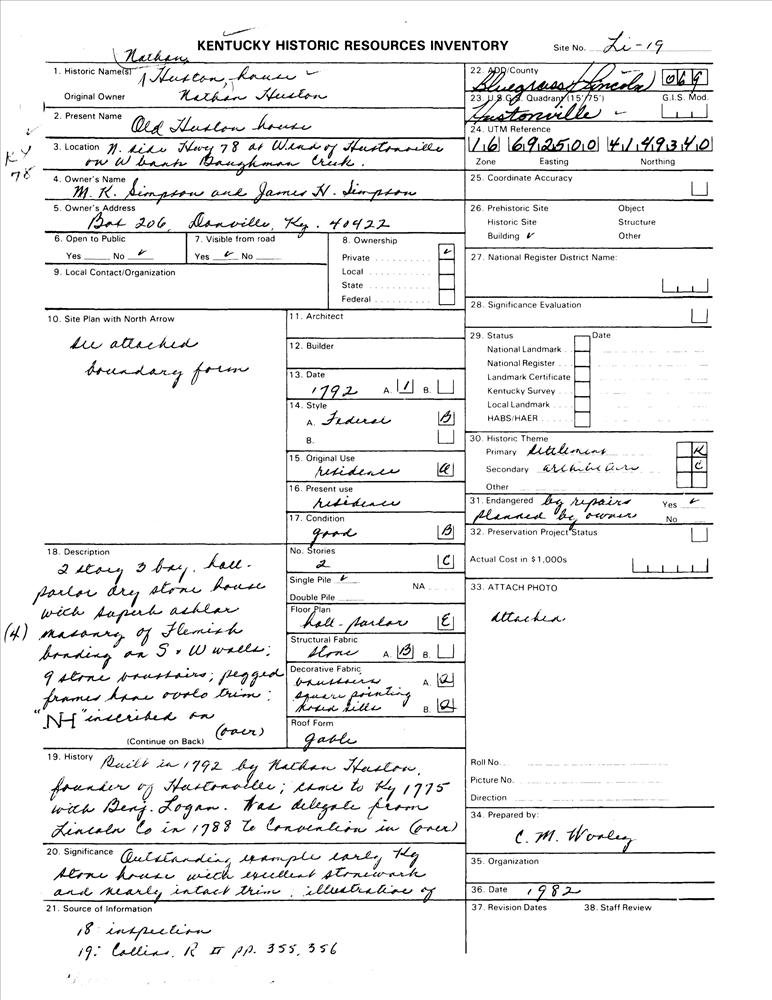 KENTUCKY HISTORIC RESOURCES INVENTORY
Site No. Li-19
Nathan
1. Historic Name(s) Huston, house
Original Owner Nathan Huston
2. Present Name Old Huston house
3. Location N. side Hwy 78 at W end of Hustonville
on W bank Baughman Creek.
KY
78
4. Owner's Name
M. K. Simpson and James H. Simpson
5. Owner's Address
Box 206, Danville, Ky. 40422
6. Open to Public
Yes No ✓
7. Visible from road
Yes ✓ No
8. Ownership
Private ✓
Local
State
Federal
9. Local Contact/Organization
10. Site Plan with North Arrow
see attached
boundary form
11. Architect
12. Builder
13. Date
1792 A. 1 B.
14. Style
A. Federal B
B.
15. Original Use
residence a
16. Present use
residence
17. Condition
good B
18. Description
2 story 3 bay, hall-
parlor dry stone house
with superb ashlar
(4) masonry of Flemish
bonding on S & W walls;
9 stone voussoirs; pegged
frames have ovolo trim;
"NH" inscribed on
(over)
(Continue on Back)
No. Stories
2 C
Single Pile ✓ NA
Double Pile
Floor Plan
hall-parlor E
Structural Fabric
stone A. B B.
Decorative Fabric
voussoirs A. a
square pointing
sills B. a
Roof Form
gable
19. History Built in 1792 by Nathan Huston,
founder of Hustonville; came to Ky 1775
with Benj. Logan. Was delegate from
Lincoln Co in 1788 to Convention in (over)
20. Significance Outstanding example early Ky
stone house with excellent stonework
and nearly intact trim, illustration of
21. Source of Information
18: inspection
19: Collins, R II pp. 355, 356
22. ADD/County
Bluegrass/Lincoln 069
23. U.S.G.S. Quadrant (15'/75') G.I.S. Mod.
Hustonville
24. UTM Reference
16 692500 4149340
Zone Easting Northing
25. Coordinate Accuracy
26. Prehistoric Site Object
Historic Site Structure
Building ✓ Other
27. National Register District Name:
28. Significance Evaluation
29. Status Date
National Landmark
National Register
Landmark Certificate
Kentucky Survey
Local Landmark
HABS/HAER
30. Historic Theme
Primary settlement K
Secondary architecture C
Other
31. Endangered by repairs Yes ✓
planned by owner No
32. Preservation Project Status
Actual Cost in $1,000s
33. ATTACH PHOTO
attached
Roll No.
Picture No.
Direction
34. Prepared by:
C. M. Wooley
35. Organization
36. Date 1982
37. Revision Dates 38. Staff Review